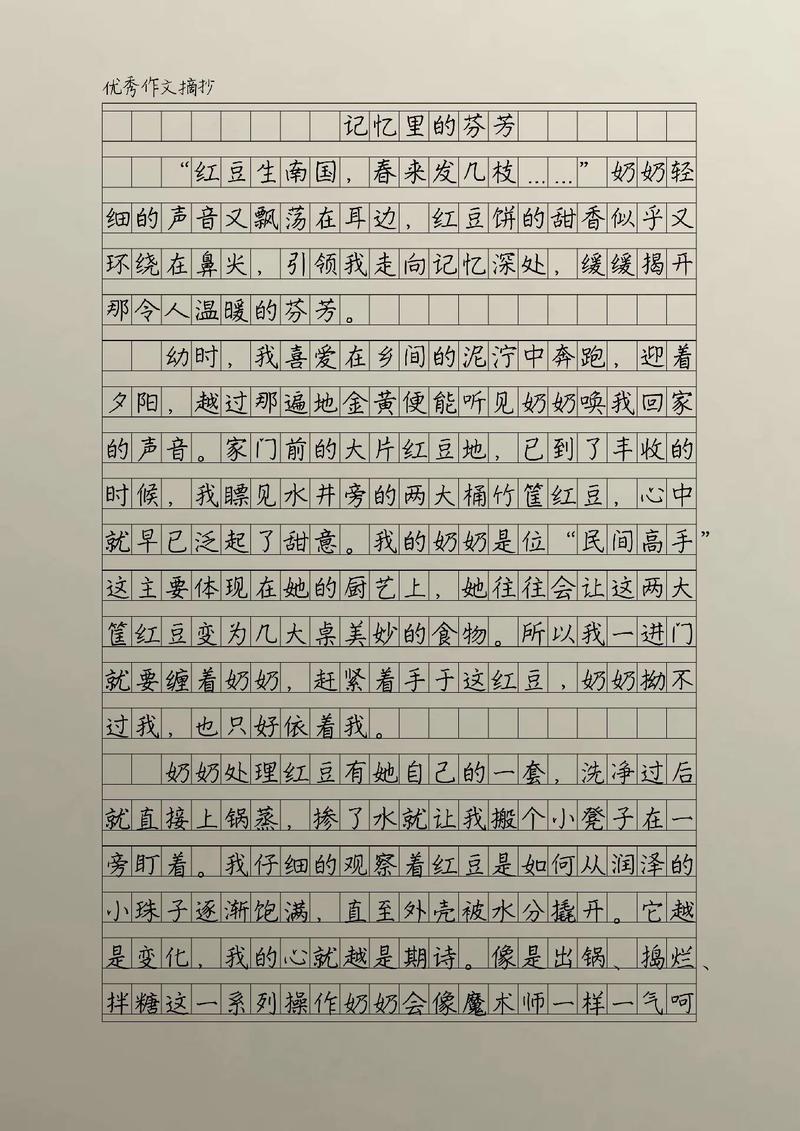 优秀作文摘抄
记忆里的芬芳
“红豆生南国，春来发几枝……”奶奶轻
细的声音又飘荡在耳边，红豆饼的甜香似乎又
环绕在鼻尖，引领我走向记忆深处，缓缓揭开
那令人温暖的芬芳。
幼时，我喜爱在乡间的泥泞中奔跑，迎着
夕阳，越过那遍地金黄便能听见奶奶唤我回家
的声音。家门前的大片红豆地，已到了丰收的
时候，我瞟见水井旁的两大桶竹筐红豆，心中
就早已泛起了甜意。我的奶奶是位“民间高手”
这主要体现在她的厨艺上，她往往会让这两大
筐红豆变为几大桌美妙的食物。所以我一进门
就要缠着奶奶，赶紧着手于这红豆，奶奶拗不
过我，也只好依着我。
奶奶处理红豆有她自己的一套，洗净过后
就直接上锅蒸，掺了水就让我搬个小凳子在一
旁盯着。我仔细的观察着红豆是如何从润泽的
小珠子逐渐饱满，直至外壳被水分撬开。它越
是变化，我的心就越是期诗。像是出锅、捣烂、
拌糖这一系列操作奶奶会像魔术师一样一气呵